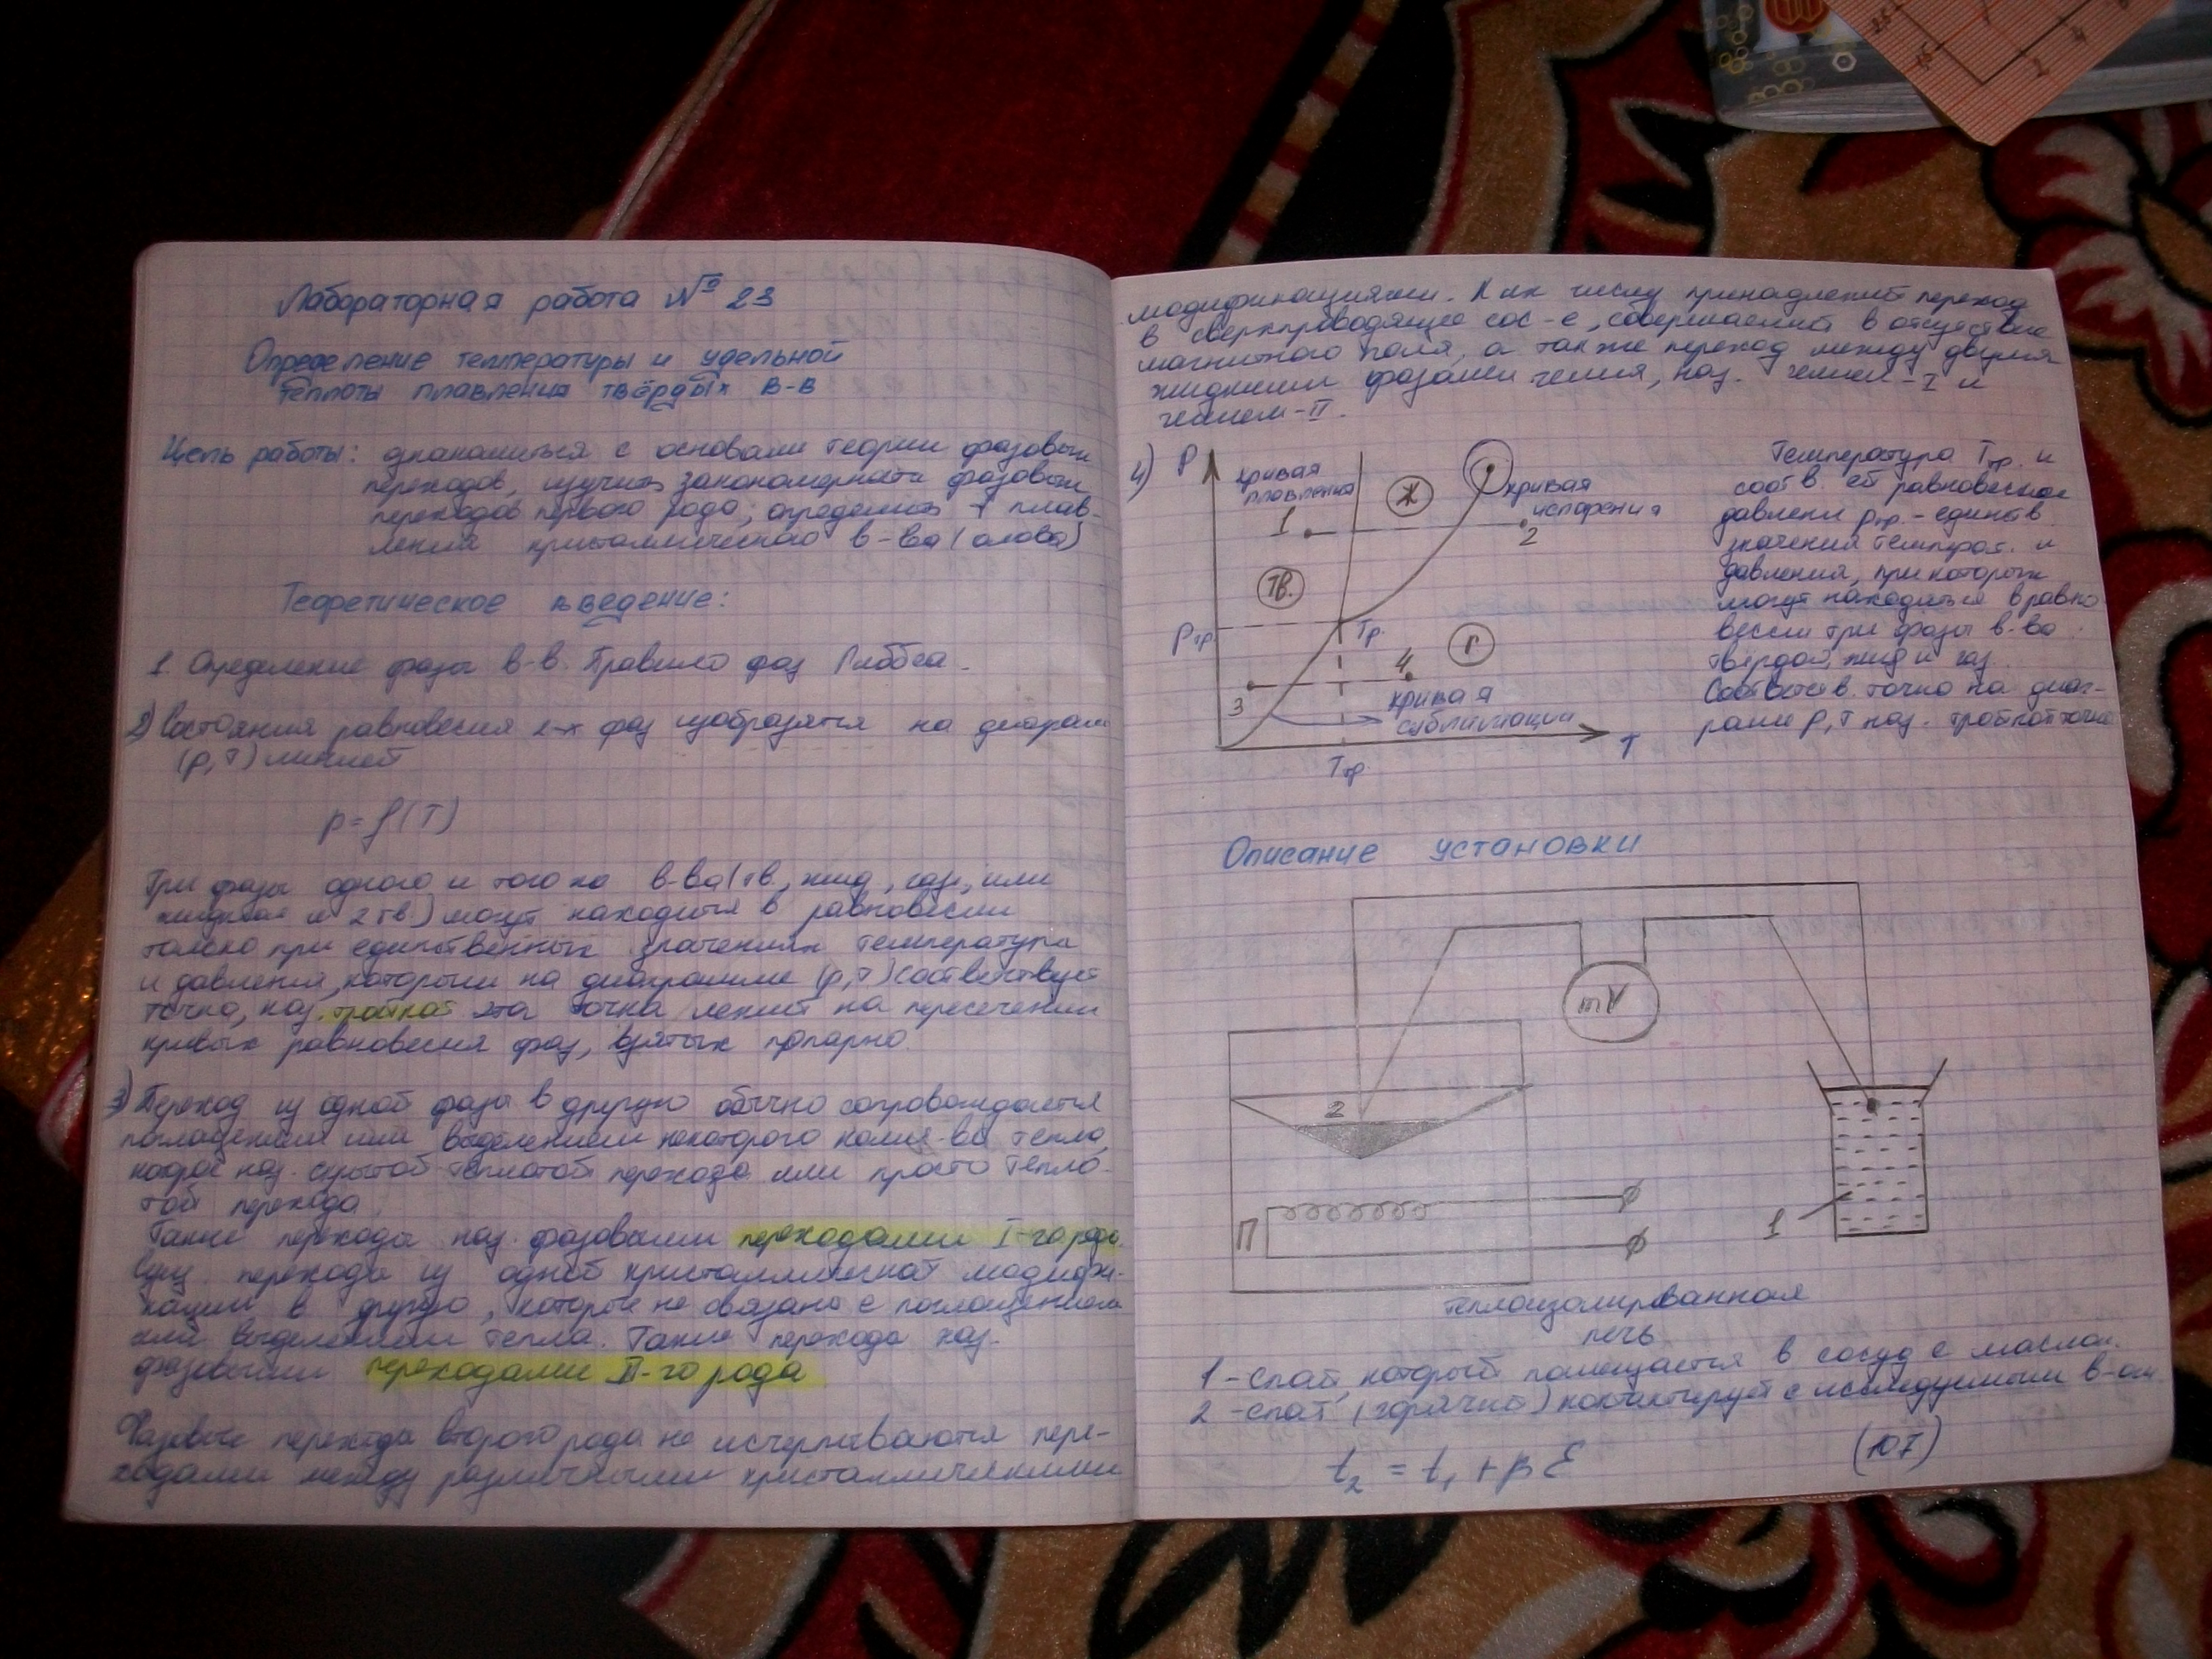 Лабораторная работа № 23
Определение температуры и удельной
теплоты плавления твёрдых в-в
Цель работы: ознакомиться с основами теории фазовых
переходов, изучить закономерности фазовых
переходов первого рода; определить t плав-
ления кристаллического в-ва (олова)
Теоретическое введение:
1. Определение фазы в-в. Правило фаз Гиббса.
2) Состояния равновесия 2-х фаз изобразятся на диаграм
(p,T) линией
p=f(T)
Три фазы одного и того же в-ва (тв., жид., газ., или
жидкая и 2 тв.) могут находится в равновесии
только при единственных значениях температуры
и давления, которым на диаграмме (p,T) соответствует
точка, наз. тройной эта точка лежит на пересечении
кривых равновесия фаз, взятых попарно.
3) Переход из одной фазы в другую обычно сопровождается
поглащением или выделением некоторого кол-ва тепла,
которое наз. скрытой теплотой перехода или просто тепло-
той перехода.
Такие перехода наз. фазовыми переходами I-го рода.
Сущ. перехода из одной кристаллической модифи-
кации в другую, которые не связано с поглащением
или выделением тепла. Такие перехода наз.
фазовыми переходами II-го рода
Фазовые перехода второго рода не исчерпываются пере-
ходами между различными кристаллическими
модификациями. К их числу принадлежит переход
в сверхпроводящее сос-е, совершаемый в отсутствие
магнитного поля, а также переход между двумя
жидкими фазами гелия, наз. гелием-I и
гелием-II.
4) P
кривая
плавления
Ж
кривая
испарения
1
2
ТВ.
Pтр.
Тр.
Г
3
4
кривая
сублимации
T
Tтр.
Температура Tтр. и
соотв. ей равновесное
давлени pтр. - единств.
значения темпрат. и
давления, при которых
могут находиться в равно
весии три фазы в-ва
твердой, жид и газ.
Соответств. точка на диаг-
рамме p,T наз. тройной точк
Описание установки
mV
2
П
1
теплоизолированная
печь
1 - спай, который помещается в сосуд с маслом.
2 - спай (горячий) контактирует с исследуемым в-ом
t₂ = t₁ + βℰ
(107)